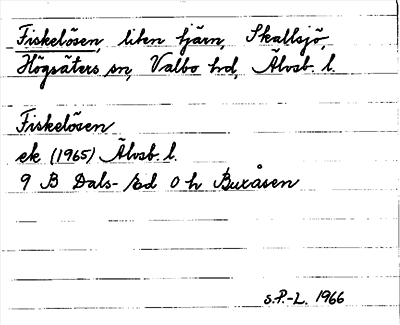 Fiskelösen, liten tjärn, Skallsjö,
Högsäters sn, Valbo hd, Älvsb. l.
Fiskelösen
ek (1965) Älvsb. l.
9 B Dals-Ed 0 h Buxåsen
s.P.-L. 1966